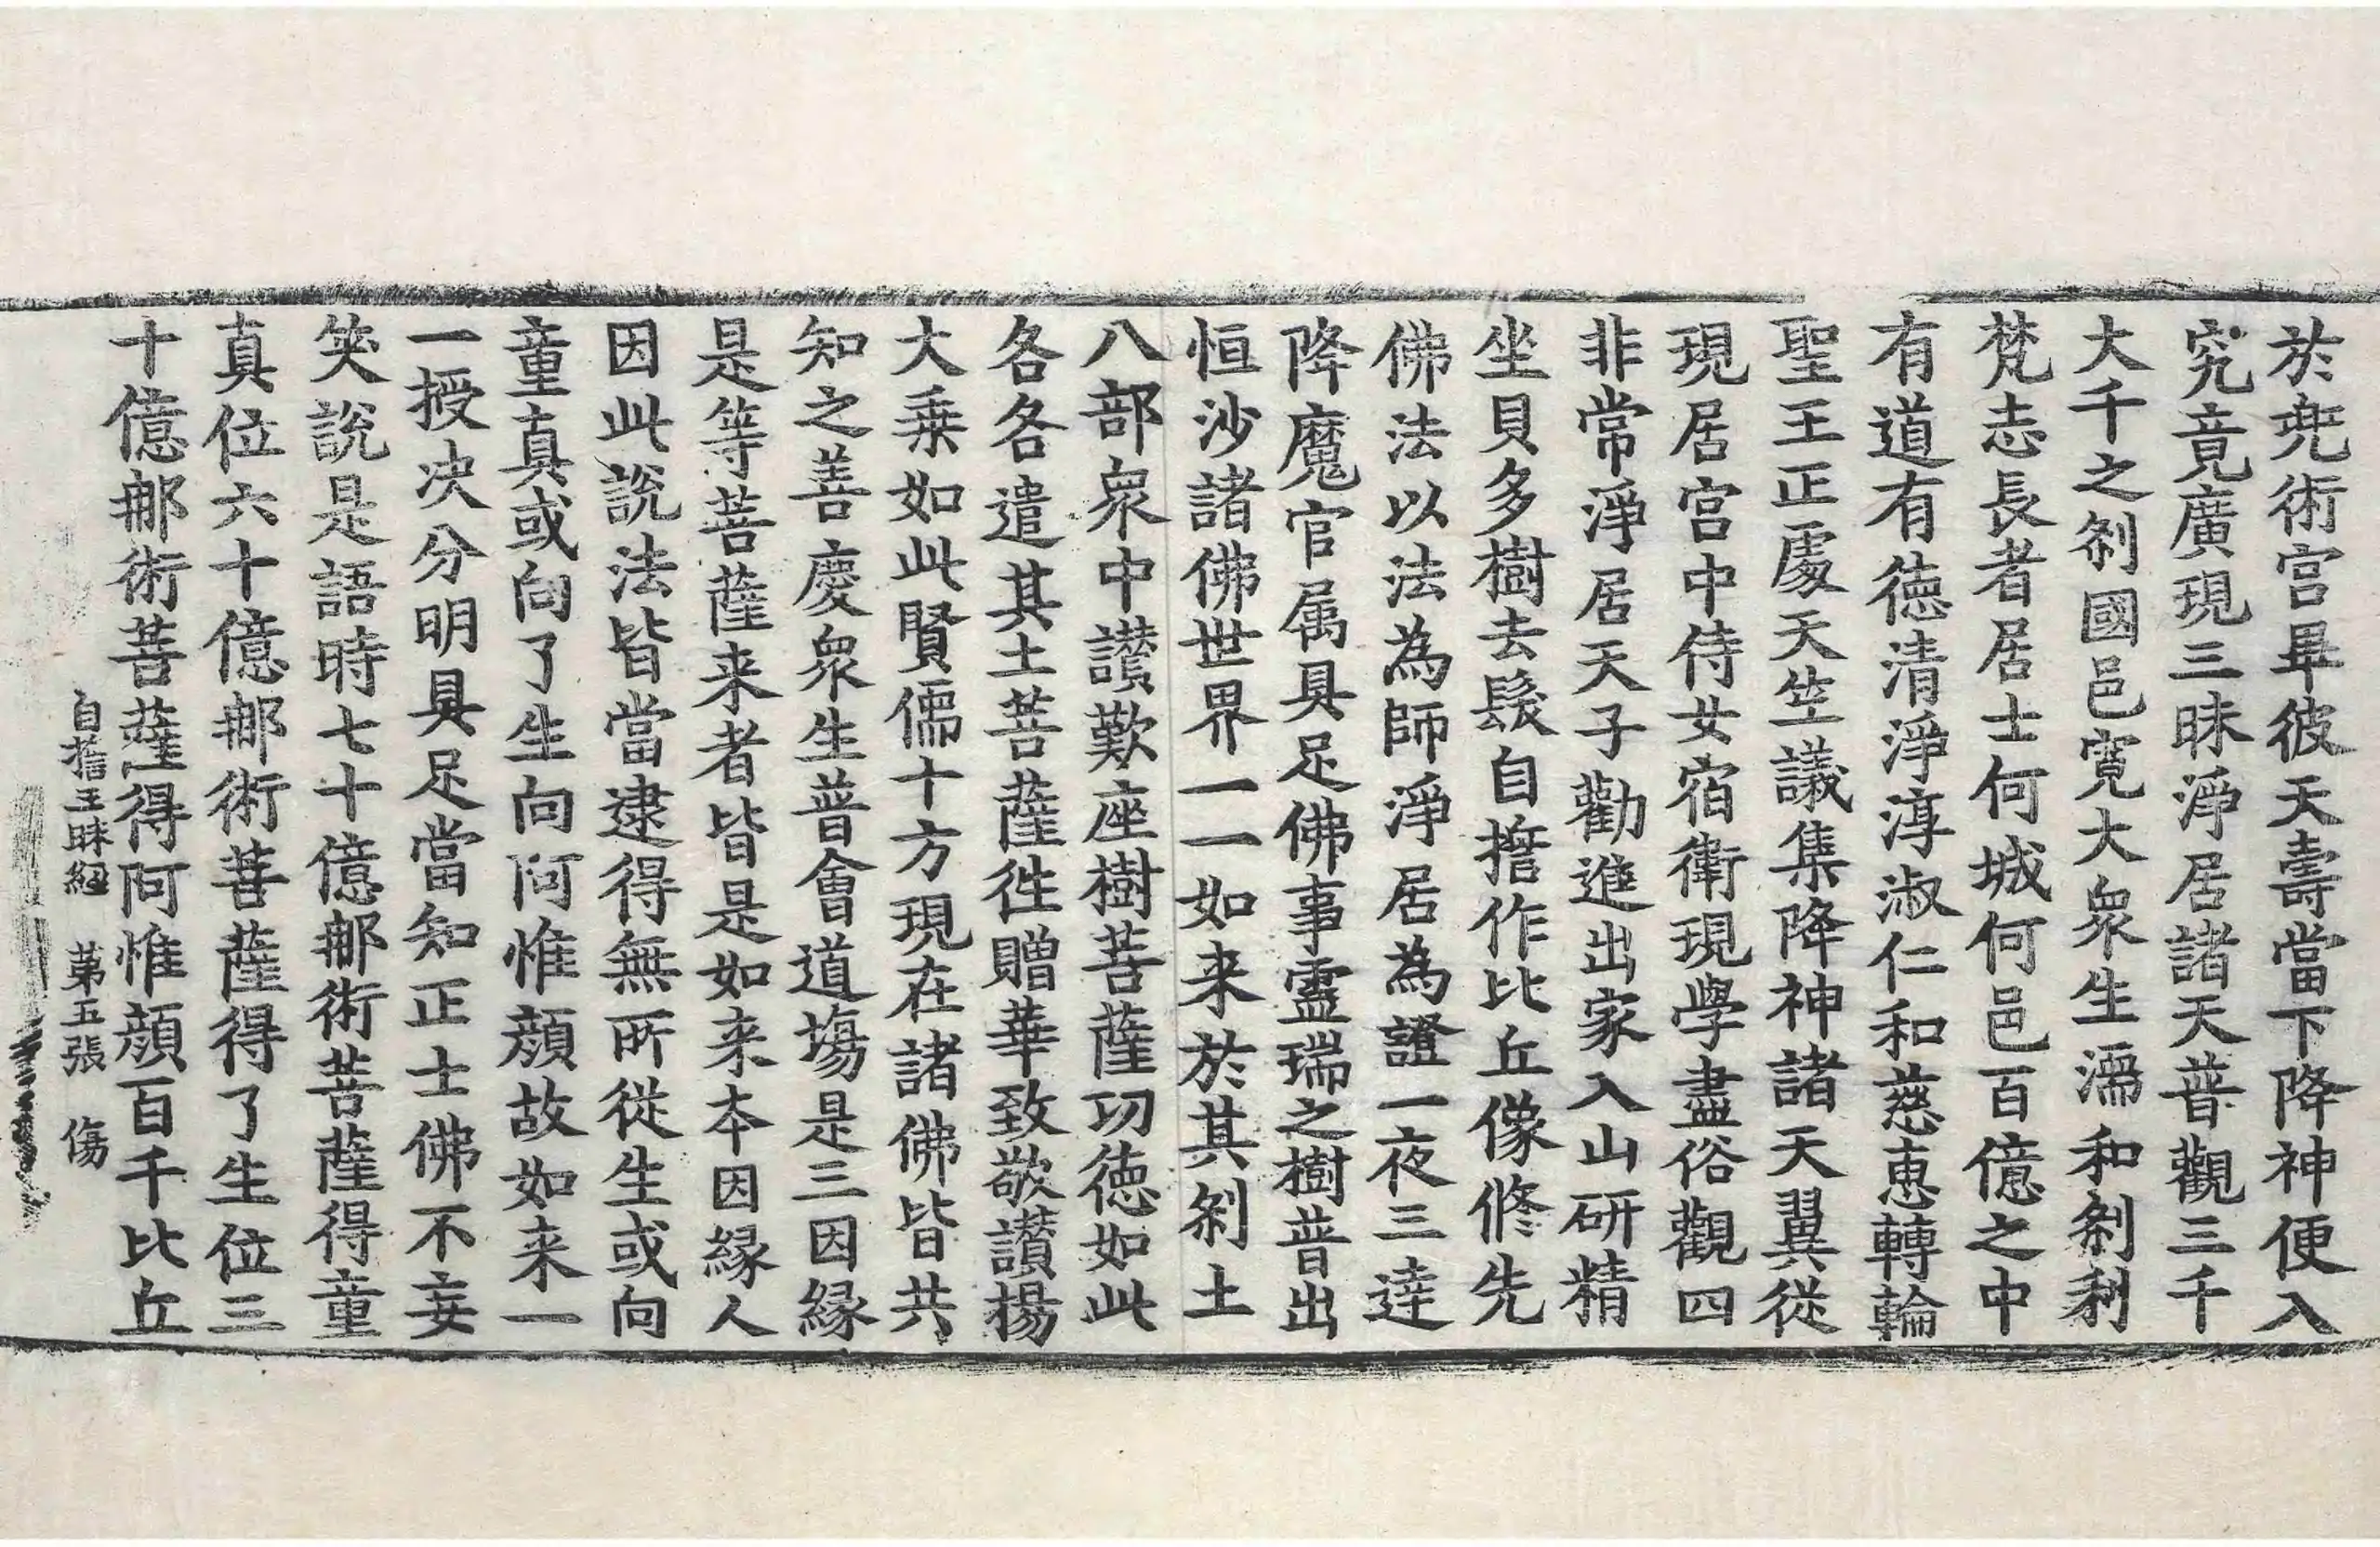 於兠術宮畢彼天壽當下降神便入
究竟廣現三昧淨居諸天普觀三千
大千之刹國邑寬大衆生濡和刹利
梵志長者居士何城何邑百億之中
有道有徳清淨淳淑仁和慈惠轉輪
聖王正處天竺議集降神諸天翼從
現居宮中侍女宿衛現學盡俗觀四
非常淨居天子勸進出家入山研精
坐貝多樹去髮自擔作比丘像修先
佛法以法為師淨居為證一夜三達
降魔官属具足佛事靈瑞之樹普出
恒沙諸佛世界一一如来於其刹土
八部衆中讃歎座樹菩薩功徳如此
各各遣其土菩薩徃贈華致敬讃揚
大乗如此賢儒十方現在諸佛皆共
知之善慶衆生普會道場是三因縁
是等菩薩来者皆是如来本因縁人
因此説法皆當逮得無所從生或向
童真或向了生向阿惟顔故如来一
一授决分明具足當知正士佛不妄
笑説是語時七十億郍術菩薩得童
真位六十億郍術菩薩得了生位三
十億郍術菩薩得阿惟顔百千比丘
自擔王昧經 苐五張 傷